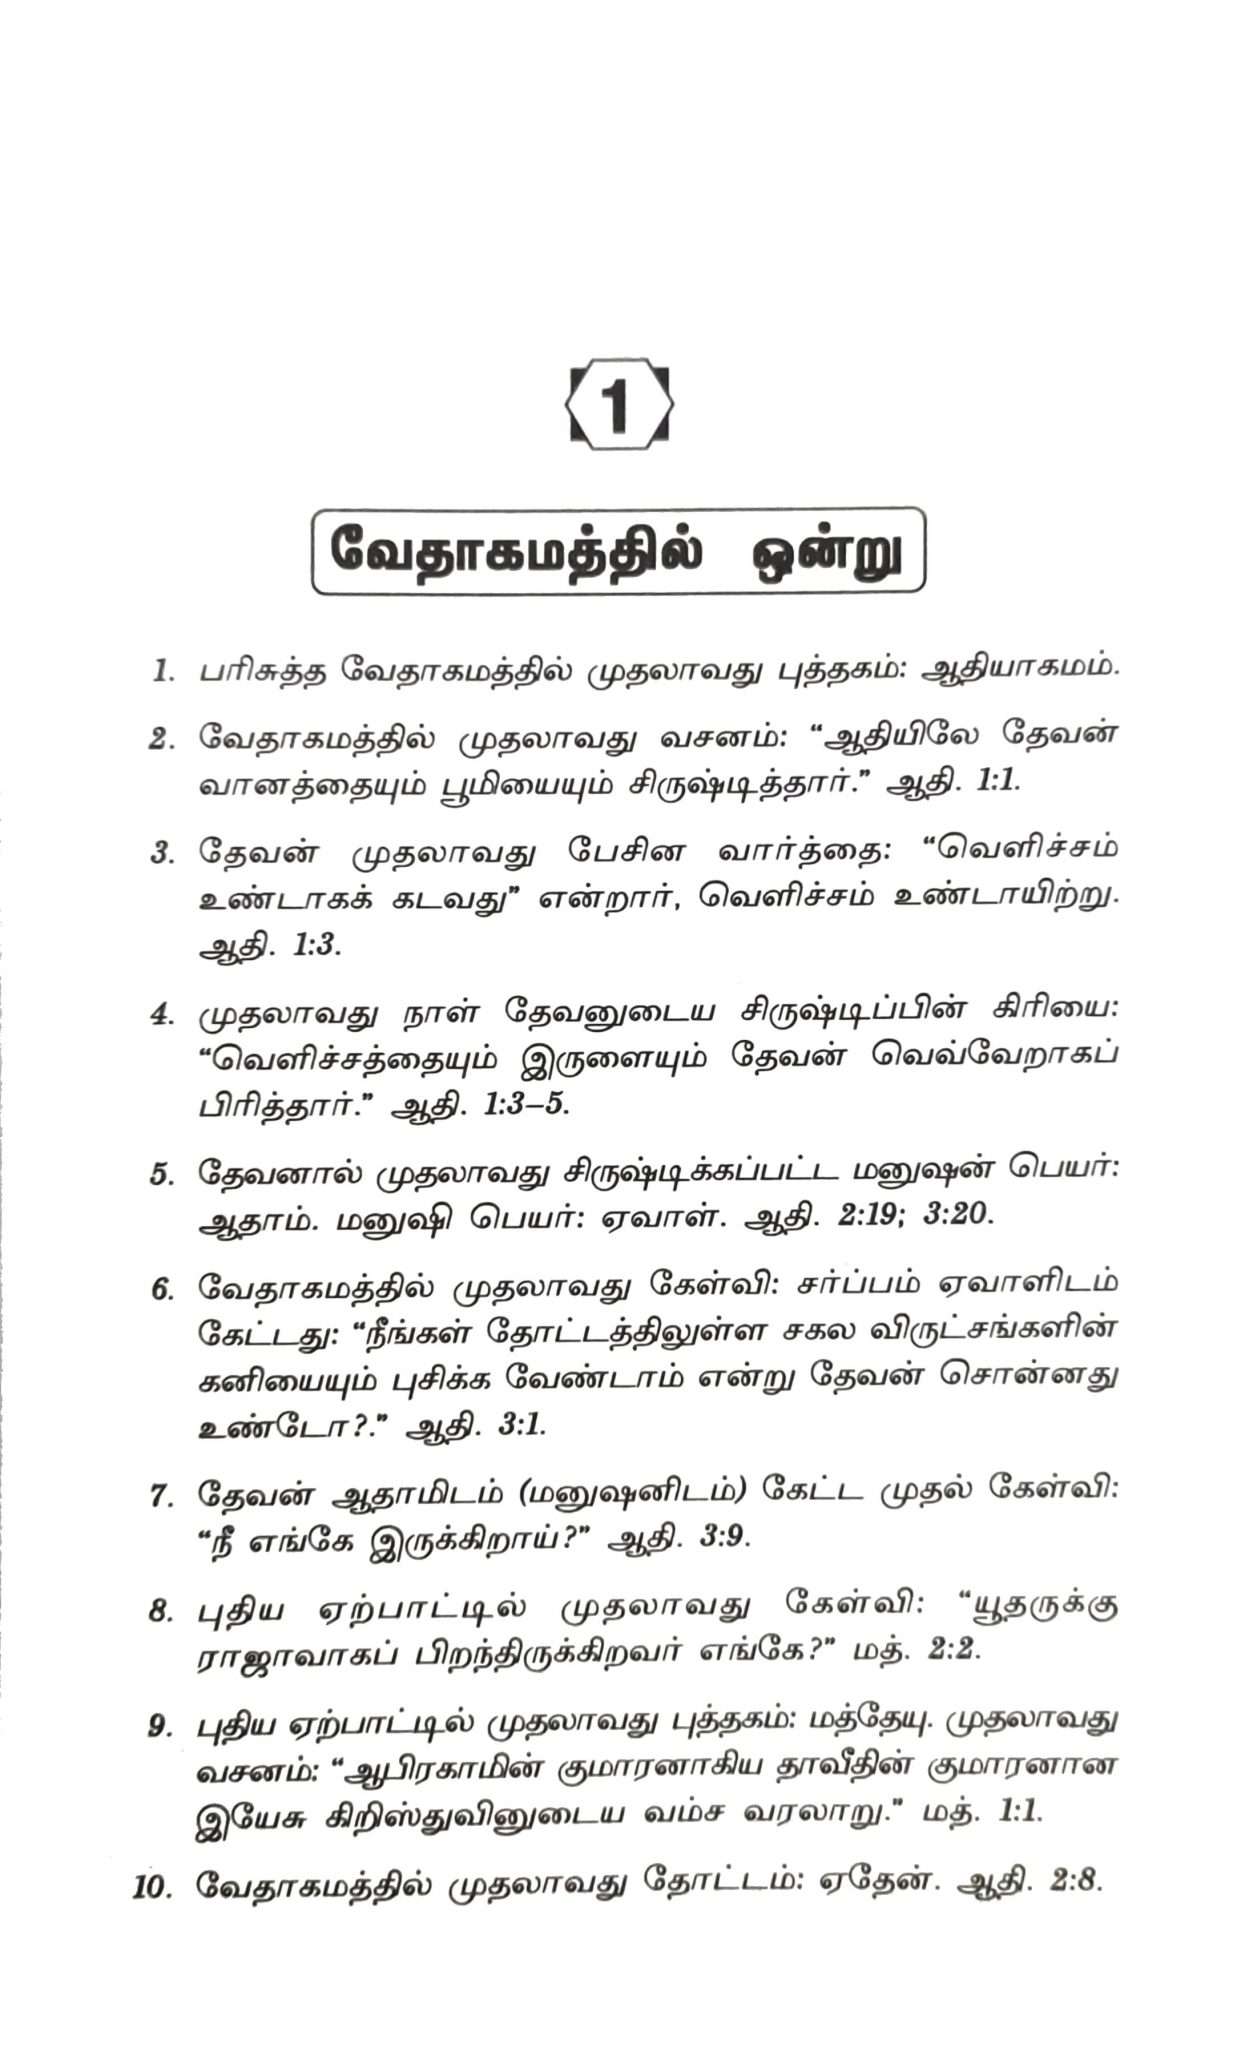 1
வேதாகமத்தில் ஒன்று
1. பரிசுத்த வேதாகமத்தில் முதலாவது புத்தகம்: ஆதியாகமம்.
2. வேதாகமத்தில் முதலாவது வசனம்: “ஆதியிலே தேவன்
வானத்தையும் பூமியையும் சிருஷ்டித்தார்.” ஆதி. 1:1.
3. தேவன் முதலாவது பேசின வார்த்தை: “வெளிச்சம்
உண்டாகக் கடவது” என்றார், வெளிச்சம் உண்டாயிற்று.
ஆதி. 1:3.
4. முதலாவது நாள் தேவனுடைய சிருஷ்டிப்பின் கிரியை:
“வெளிச்சத்தையும் இருளையும் தேவன் வெவ்வேறாகப்
பிரித்தார்.” ஆதி. 1:3–5.
5. தேவனால் முதலாவது சிருஷ்டிக்கப்பட்ட மனுஷன் பெயர்:
ஆதாம். மனுஷி பெயர்: ஏவாள். ஆதி. 2:19; 3:20.
6. வேதாகமத்தில் முதலாவது கேள்வி: சர்ப்பம் ஏவாளிடம்
கேட்டது: “நீங்கள் தோட்டத்திலுள்ள சகல விருட்சங்களின்
கனியையும் புசிக்க வேண்டாம் என்று தேவன் சொன்னது
உண்டோ?.” ஆதி. 3:1.
7. தேவன் ஆதாமிடம் (மனுஷனிடம்) கேட்ட முதல் கேள்வி:
“நீ எங்கே இருக்கிறாய்?” ஆதி. 3:9.
8. புதிய ஏற்பாட்டில் முதலாவது கேள்வி: “யூதருக்கு
ராஜாவாகப் பிறந்திருக்கிறவர் எங்கே?” மத். 2:2.
9. புதிய ஏற்பாட்டில் முதலாவது புத்தகம்: மத்தேயு. முதலாவது
வசனம்: “ஆபிரகாமின் குமாரனாகிய தாவீதின் குமாரனான
இயேசு கிறிஸ்துவினுடைய வம்ச வரலாறு.” மத். 1:1.
10. வேதாகமத்தில் முதலாவது தோட்டம்: ஏதேன். ஆதி. 2:8.